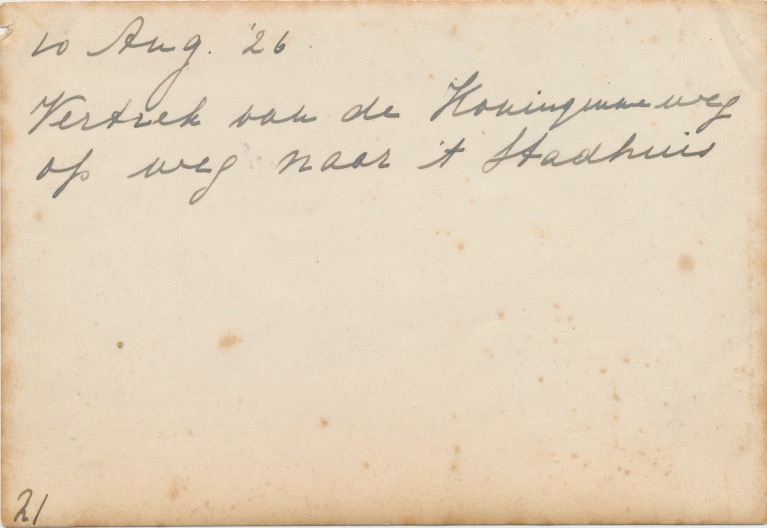 10 Aug. '26.
Vertrek van de Koninginneweg
op weg naar 't Stadhuis
21